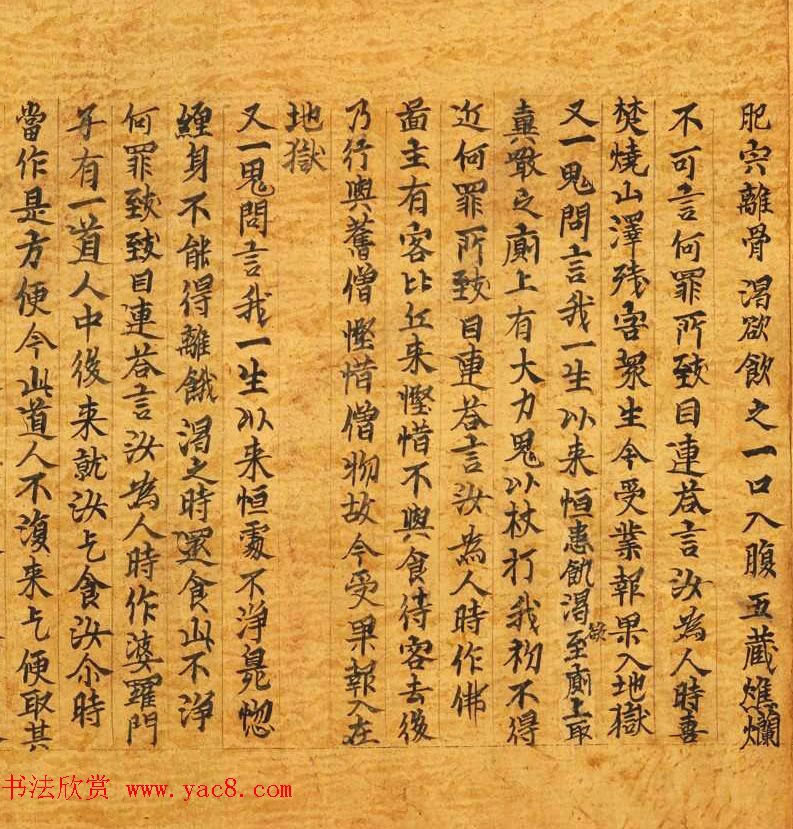 肥肉離骨渴欲飲之一口入腹五藏燋爛
不可言何罪所致目連荅言汝為人時喜
焚燒山澤殘害眾生今受業報果入地獄
又一鬼問言我一生以来恒患飢渴欲至廁上取
糞噉之廁上有大力鬼以杖打我初不得
近何罪所致目連荅言汝為人時作佛
啚主有客比丘来慳惜不與食待客去後
乃行與舊僧慳惜僧物故今受果報入在
地獄
又一鬼問言我一生以来恒處不淨臰惚
纏身不能得離餓渴之時還食此不淨
何罪致致目連荅言汝為人時作婆羅門
子有一道人中後来就汝乞食汝尒時
當作是方便今此道人不復来乞便取其
书法欣赏 www.yac8.com